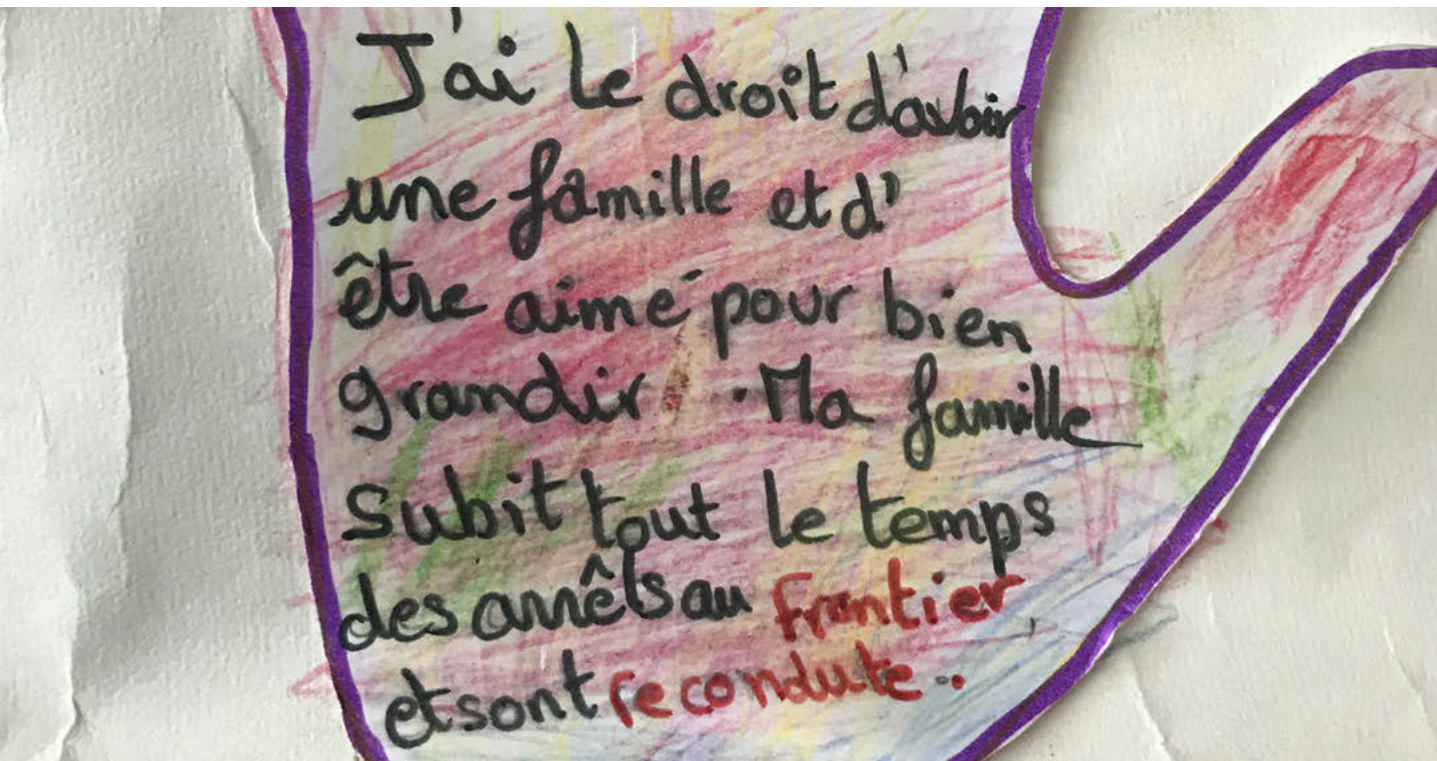 J'ai le droit d'avoir
une famille et d'
être aimé pour bien
grandir . Ma famille
subit tout le temps
des arrêts au frontier
et sont reconduite..